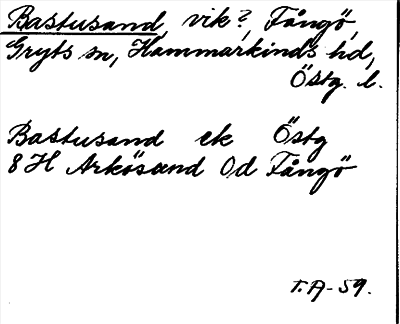 Bastusand, vik?, Fångö,
Gryts sn, Hammarkinds hd,
Östg. l.
Bastusand ek Östg
8 H Arkösund Od Fångö
T.A-59.